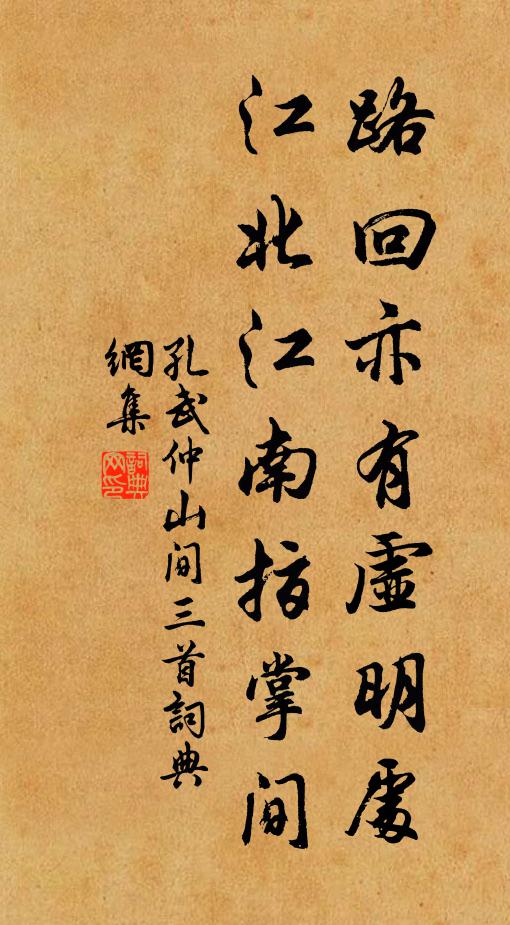 路回亦有虛明處
江北江南指掌間
孔武仲山間三首詞典
網集
詞典網印